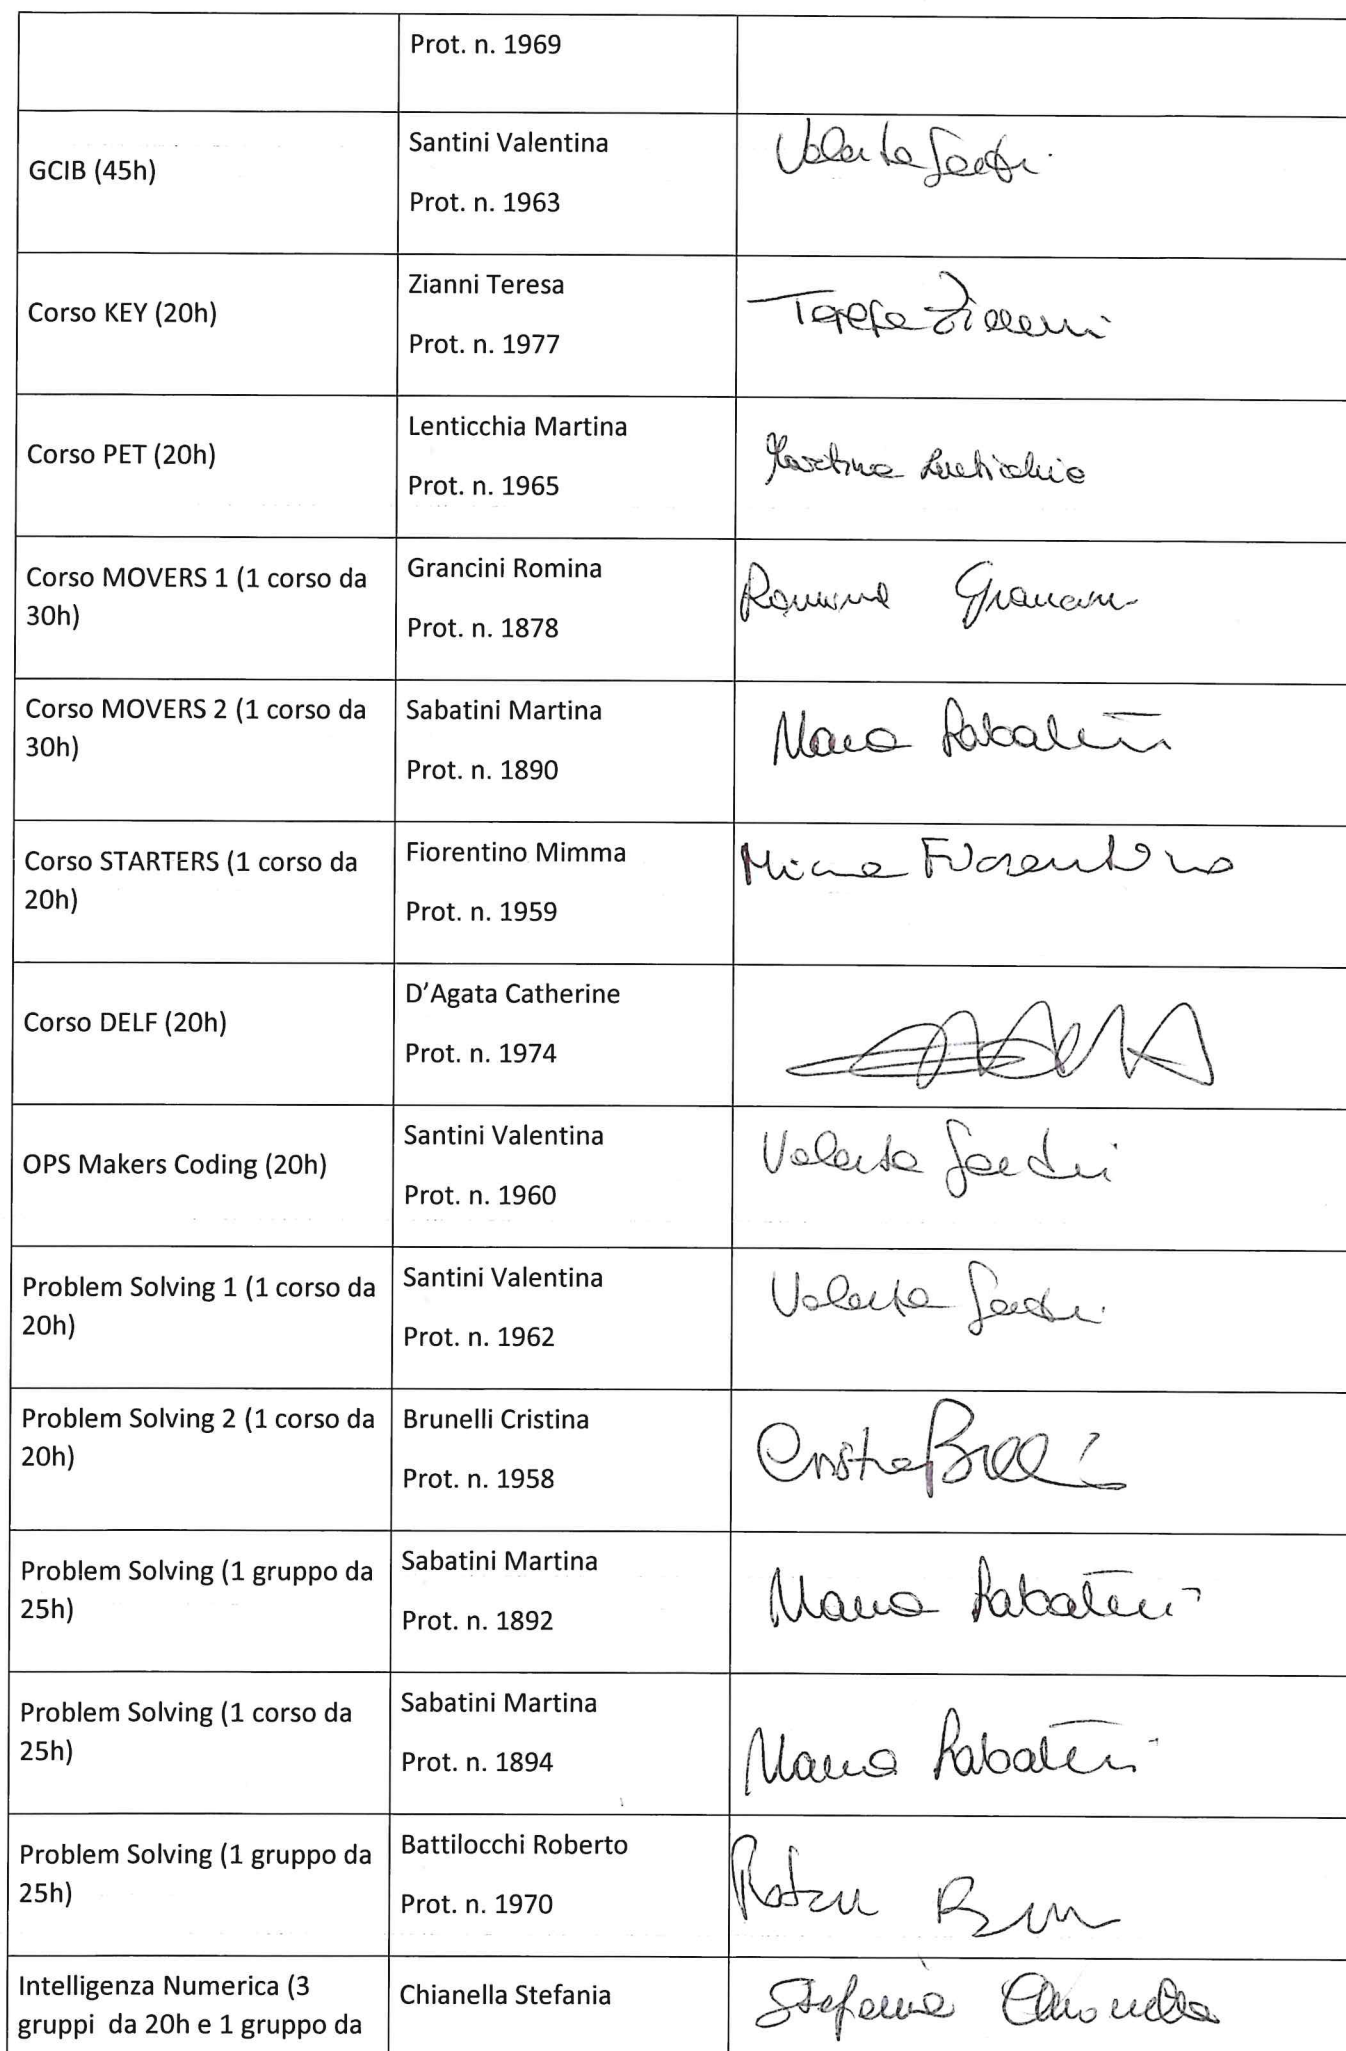 Prot. n. 1969
GCIB (45h)
Santini Valentina
Prot. n. 1963
Corso KEY (20h)
Zianni Teresa
Prot. n. 1977
Teresa Zianni
Corso PET (20h)
Lenticchia Martina
Prot. n. 1965
Martina Lenticchia
Corso MOVERS 1 (1 corso da
30h)
Grancini Romina
Prot. n. 1878
Romina Grancini
Corso MOVERS 2 (1 corso da
30h)
Sabatini Martina
Prot. n. 1890
Sabatini
Corso STARTERS (1 corso da
20h)
Fiorentino Mimma
Prot. n. 1959
Fiorentino
Corso DELF (20h)
D'Agata Catherine
Prot. n. 1974
OPS Makers Coding (20h)
Santini Valentina
Prot. n. 1960
Problem Solving 1 (1 corso da
20h)
Santini Valentina
Prot. n. 1962
Problem Solving 2 (1 corso da
20h)
Brunelli Cristina
Prot. n. 1958
Problem Solving (1 gruppo da
25h)
Sabatini Martina
Prot. n. 1892
Sabatini
Problem Solving (1 corso da
25h)
Sabatini Martina
Prot. n. 1894
Sabatini
Problem Solving (1 gruppo da
25h)
Battilocchi Roberto
Prot. n. 1970
Intelligenza Numerica (3
gruppi da 20h e 1 gruppo da
Chianella Stefania
Stefania Chianella